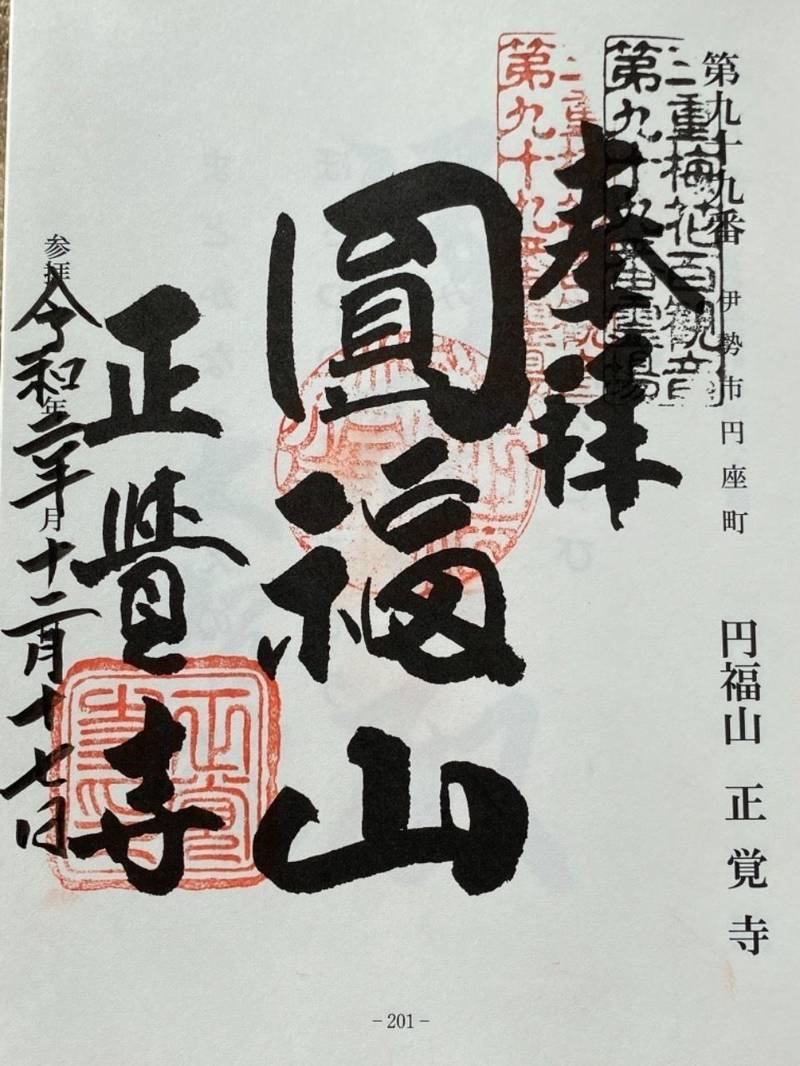 第九十九番　伊勢市円座町　円福山　正覚寺
三重梅花百観音
第九十九番霊場
奉拝
第九十九番霊場
圓福山
正覺寺
正覚
寺印
参拝　年　月
令和二年十二月十七日
－201－